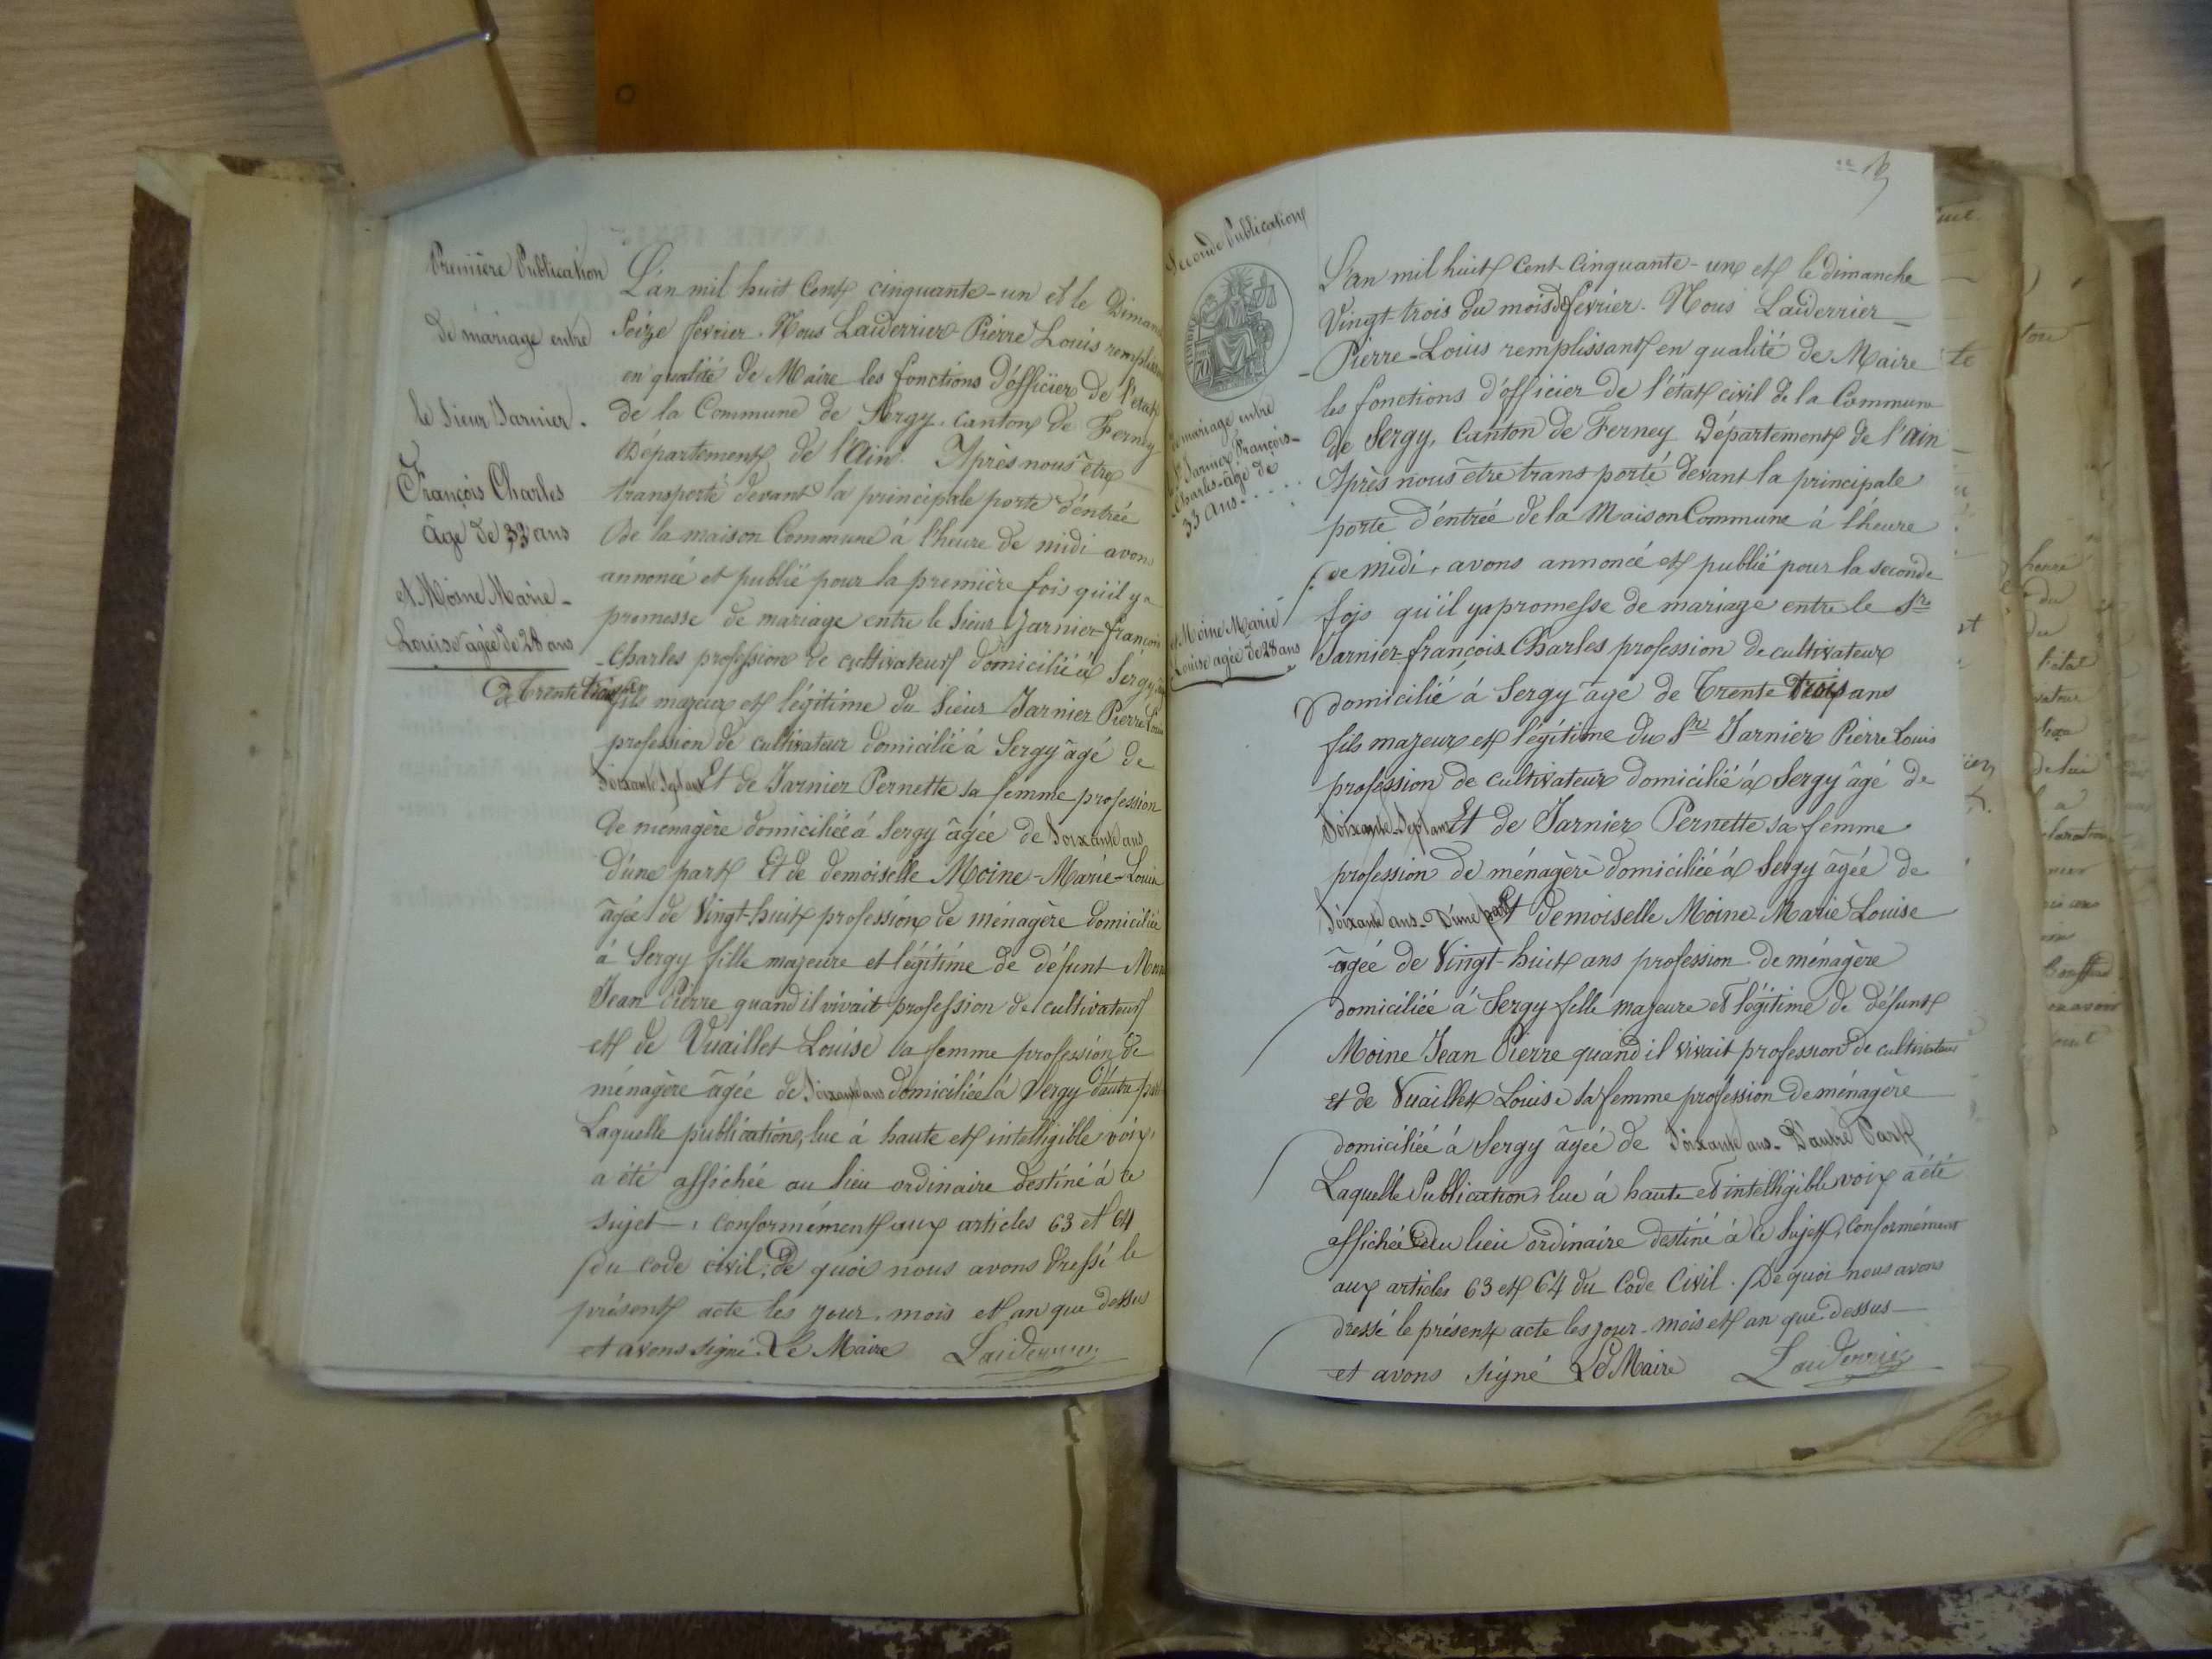 Première Publication
de mariage entre
le Sieur Jarnier.
François Charles
âgé de 33 ans
et Moine Marie-
Louise âgée de 28 ans
L'an mil huit Cent cinquante-un et le Dimanc
Seize février. Nous Laiderrier Pierre Louis rempliss
en qualité de Maire les fonctions d'officier de l'état
de la Commune de Sergy, canton de Ferney
Département de l'Ain. Après nous être
transporté devant la principale porte d'entrée
De la maison Commune à l'heure de midi avons
annoncé et publié pour la première fois qu'il y a
promesse de mariage entre le Sieur Jarnier-françois
-Charles profession de cultivateur domicilié à Sergy
de trente trois ans fils majeur et légitime du Sieur Jarnier Pierre Louis
profession de cultivateur domicilié à Sergy âgé de
Soixante Sept ans Et de Jarnier Pernette sa femme profession
De ménagère domiciliée à Sergy âgée de Soixante ans
D'une part Et de demoiselle Moine-Marie-Louise
âgée de Vingt-huit profession de ménagère domiciliée
à Sergy fille majeure et légitime de défunt Moin
Jean Pierre quand il vivait profession de cultivateur
et de Vuaillet Louise sa femme profession de
ménagère âgée de Soixante ans domiciliée à Sergy d'autre part
Laquelle publication, lue à haute et intelligible voix,
a été affichée au lieu ordinaire destiné à ce
sujet, conformément aux articles 63 et 64
du code civil, De quoi nous avons dressé le
présent acte les jour, mois et an que dessus
et avons signé. Le Maire Laiderrier
Seconde Publication
de mariage entre
le Sr Jarnier François-
Charles-âgé de
33 ans
et Moine Marie
Louise âgée de 28 ans
L'an mil huit cent-cinquante-un et le dimanche
Vingt-trois du mois de février. Nous Laiderrier
Pierre-Louis remplissant en qualité de Maire
les fonctions d'officier de l'état civil de la Commune
de Sergy, Canton de Ferney Département de l'Ain
Après nous être trans porté devant la principale
porte d'entrée de la Maison Commune à l'heure
de midi, avons annoncé et publié pour la seconde
fois qu'il y a promesse de mariage entre le Sr
Jarnier-françois Charles profession de cultivateur
domicilié à Sergy âge de Trente Trois ans
fils majeur et légitime du Sr Jarnier Pierre Louis
profession de cultivateur domicilié à Sergy âgé de
Soixante-Sept ans Et de Jarnier Pernette sa femme
profession de ménagère domiciliée à Sergy âgée de
Soixante ans. D'une part Et demoiselle Moine-Marie Louise
âgée de Vingt-huit ans profession de ménagère
domiciliée à Sergy fille majeure et légitime de défunt
Moine Jean Pierre quand il vivait profession de cultivateur
et de Vuaillet Louise sa femme profession De ménagère
domiciliée à Sergy âgée de Soixante ans. D'autre Part
Laquelle Publication, lue à haute et intelligible voix a été
affichée au lieu ordinaire destiné à ce Sujet, Conformément
aux articles 63 et 64 du Code Civil. De quoi nous avons
dressé le présent acte les jour, mois et an que dessus
et avons signé Le Maire Laiderrier